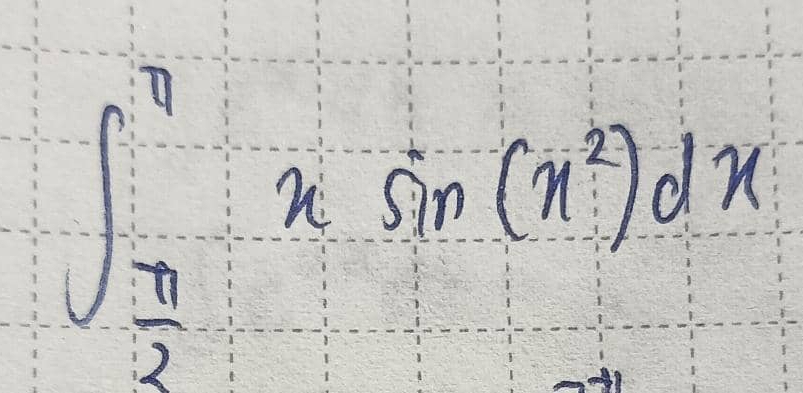 ∫_{π/2}^{π} x sin(x²)dx